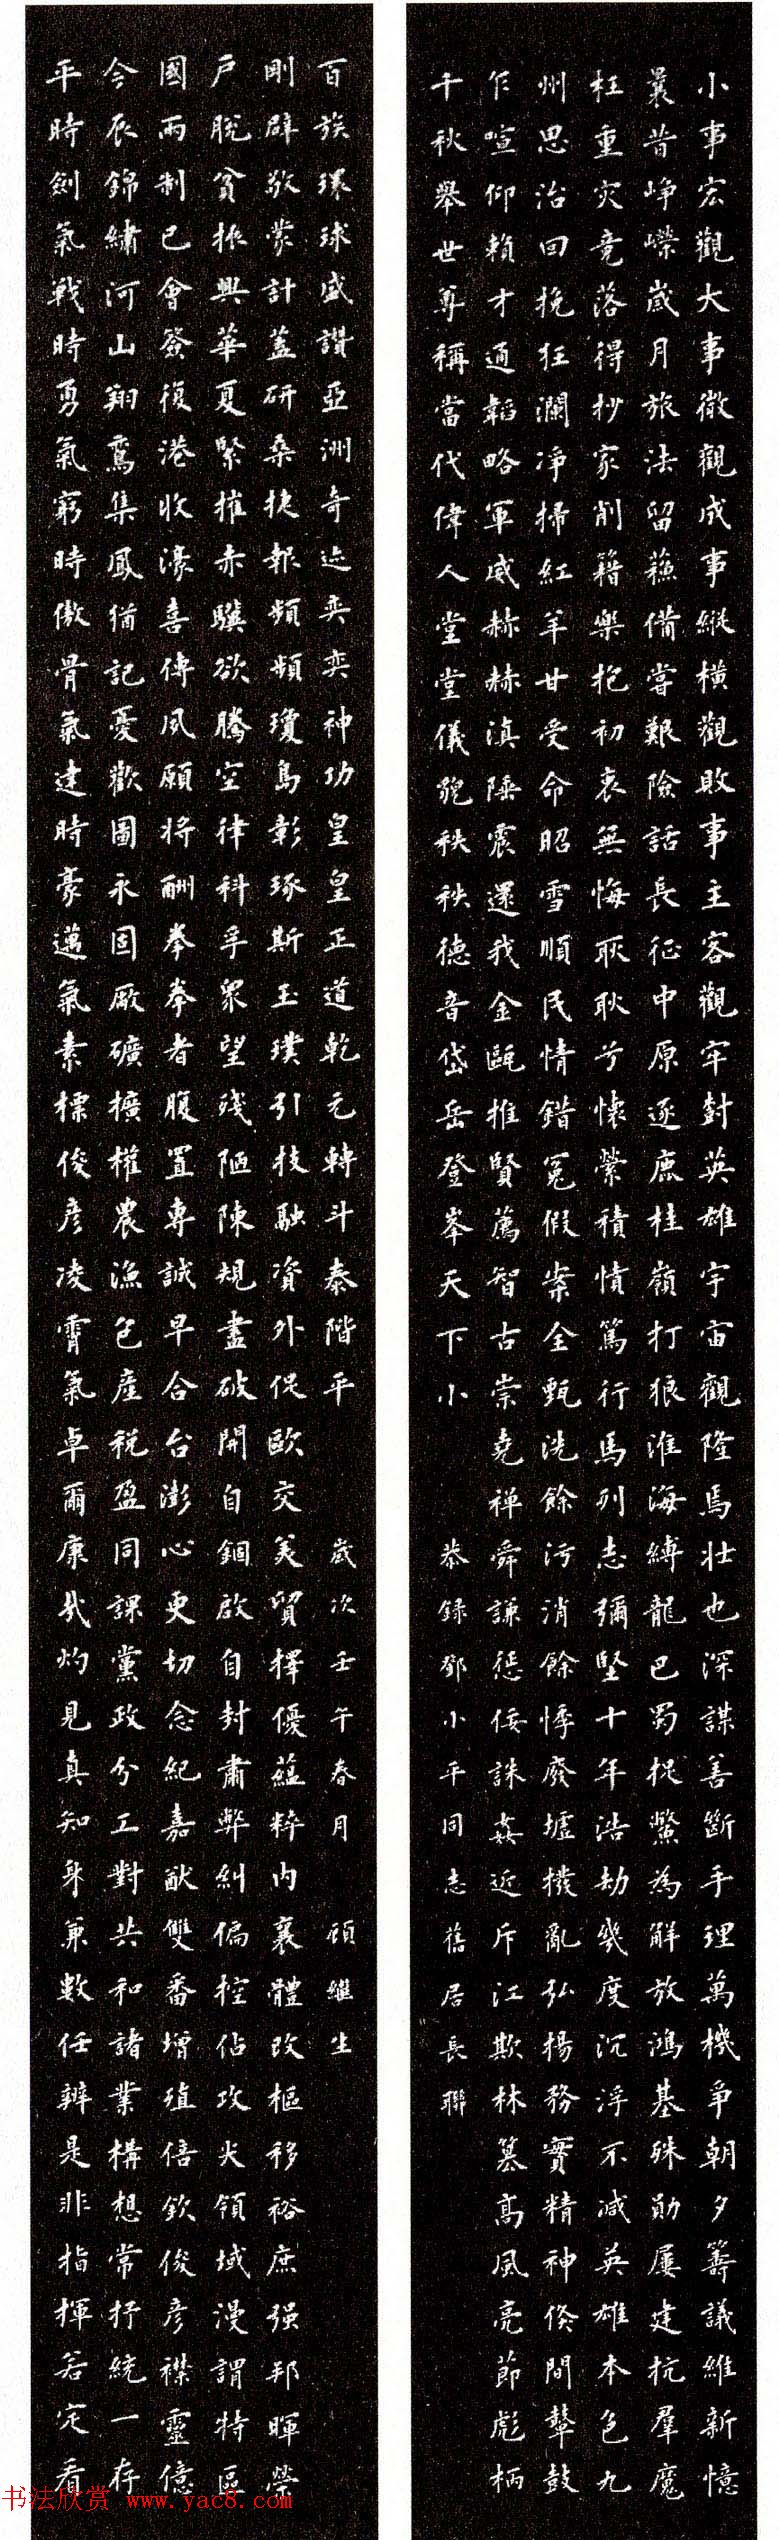 小事宏觀大事微觀成事縱橫觀敗事主客觀牢封英雄宇宙觀隆焉壯也深謀善斷手理萬機爭朝夕籌議維新憶
曩昔崢嶸歲月旅法留蘇備嘗艱險話長征中原逐鹿桂嶺打狼淮海縛龍巴蜀捉鱉為解放鴻基殊勛屢建抗羣魔
枉重灾竟落得抄家削籍樂抱初衷無悔耿耿兮懷縈積憤篤行馬列志彌堅十年浩劫幾度沉浮不減英雄本色九
州思治回挽狂瀾凈掃紅羊甘受命昭雪順民情錯冤假案全甄洗餘污消餘悸廢墟撥亂弘楊務實精神倏間鼙鼓
乍喧仰賴才通韜略軍威赫赫滇陲震還我金甌推賢薦智古崇堯禪舜謙懲佞誅姦近斥江欺林篡高風亮節彪柄
千秋舉世尊稱當代偉人堂堂儀貌秩秩德音岱岳登峯天下小 恭錄鄧小平同志舊居長聯
平時劍氣戰時勇氣窮時傲骨氣建時豪邁氣素標俊彥凌霄氣卓爾康哉灼見真知身兼數任辨是非指揮若定看
今辰錦繡河山翔鸞集鳳猶記憂歡圖永固厰礦擴權農漁包產税盈同課黨政分工對共和諸業構想常抒統一存
國兩制已會簽復港收濠喜傳夙願將酬拳拳者腹置專誠早合台澎心更切念紀嘉猷雙番增殖倍欽俊彥襟靈億
戶脫貧振興華夏緊摧赤驥欲騰空律科孚眾望殘陋陳規盡破開自錮啟自封肅弊糾偏控佔攻尖領域漫謂特區
剛辟敬蒙計蓋研桑捷報頻頻瓊島彰琢斯玉璞引技融資外促歐交美貿擇優蘊粹內襄體改樞移裕庶强邦暉榮
百族環球盛讚亞洲奇迹奕奕神功皇皇正道乾元轉斗泰階平 歲次壬午春月 顧繼生
书法欣赏 www.yac8.com